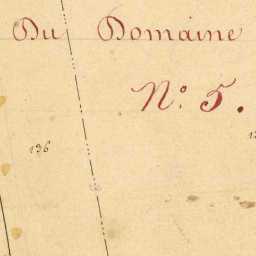 Du Domaine
N.º 5.
136